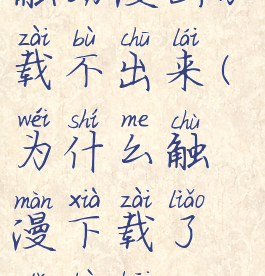 zài bù chū lái
载不出来(
wéi shí me chù
为什么触
màn xià zài liǎo
漫下载了